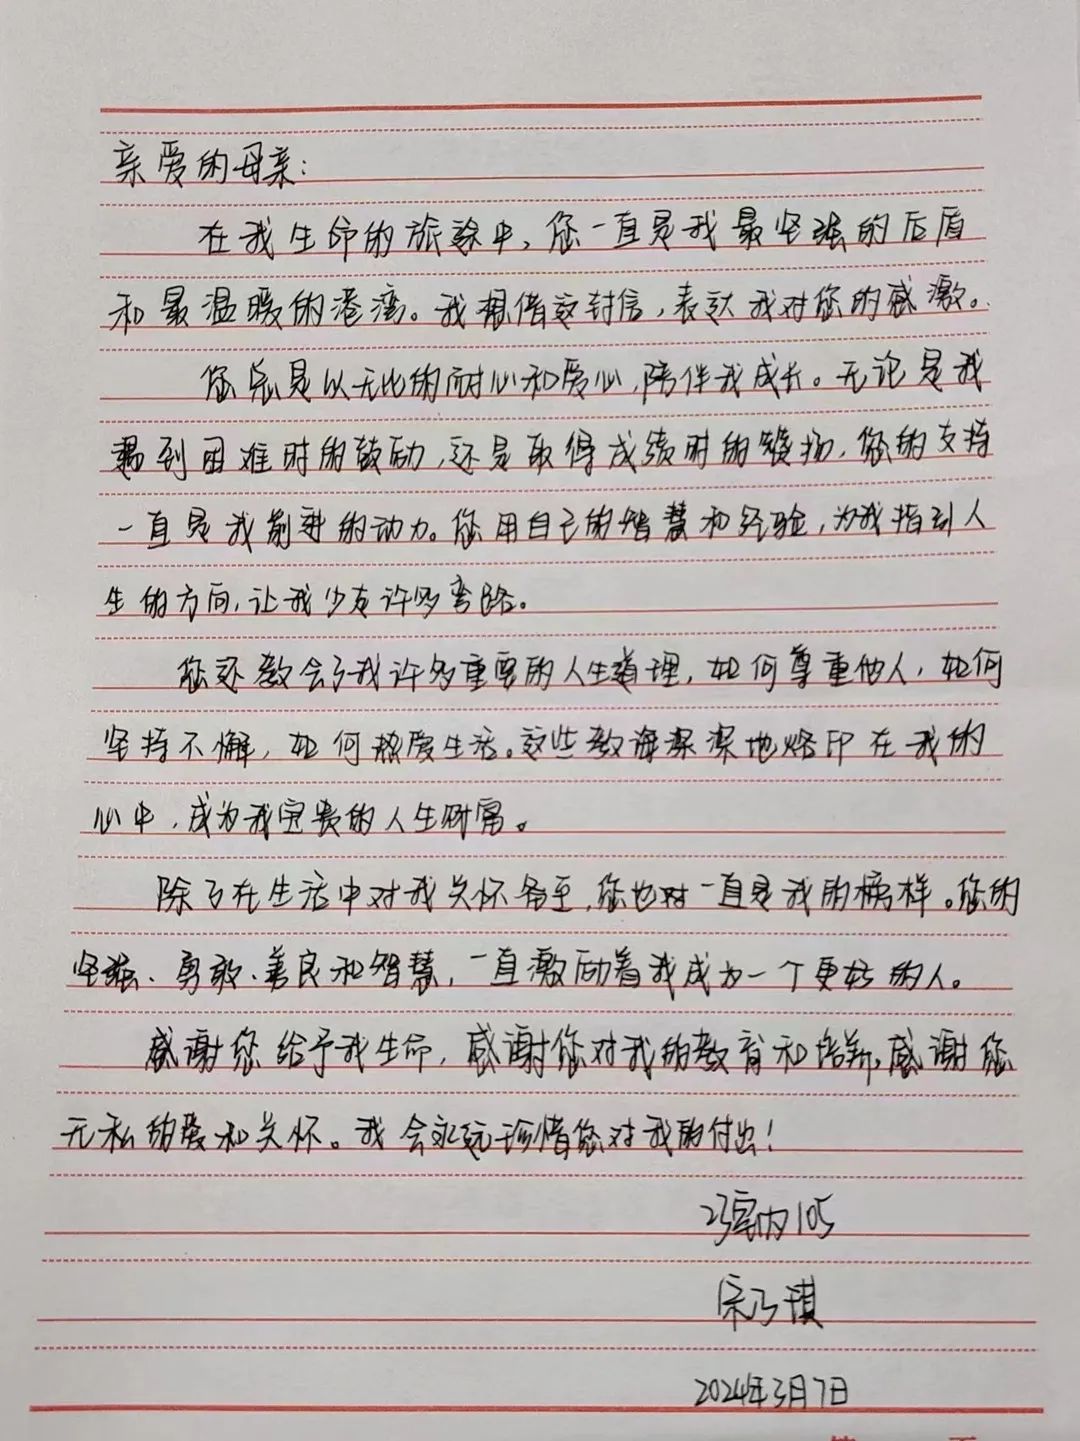 亲爱的母亲：
在我生命的旅途中，您一直是我最坚强的后盾
和最温暖的港湾。我想借这封信，表达我对您的感激。
您总是以无比的耐心和爱心，陪伴我成长。无论是我
遇到困难时的鼓励，还是取得成绩时的赞扬，您的支持
一直是我前进的动力。您用自己的智慧和经验，为我指引人
生的方向，让我少走许多弯路。
您还教会了我许多重要的人生道理，如何尊重他人，如何
坚持不懈，如何热爱生活。这些教诲深深地烙印在我的
心中，成为我宝贵的人生财富。
除了在生活中对我关怀备至，您也对一直是我的榜样。您的
坚强、勇敢、善良和智慧，一直激励着我成为一个更好的人。
感谢您给予我生命，感谢您对我的教育和培养，感谢您
无私的爱和关怀。我会永远珍惜您对我的付出！
23室内105
宋乃琪
2024年3月7日